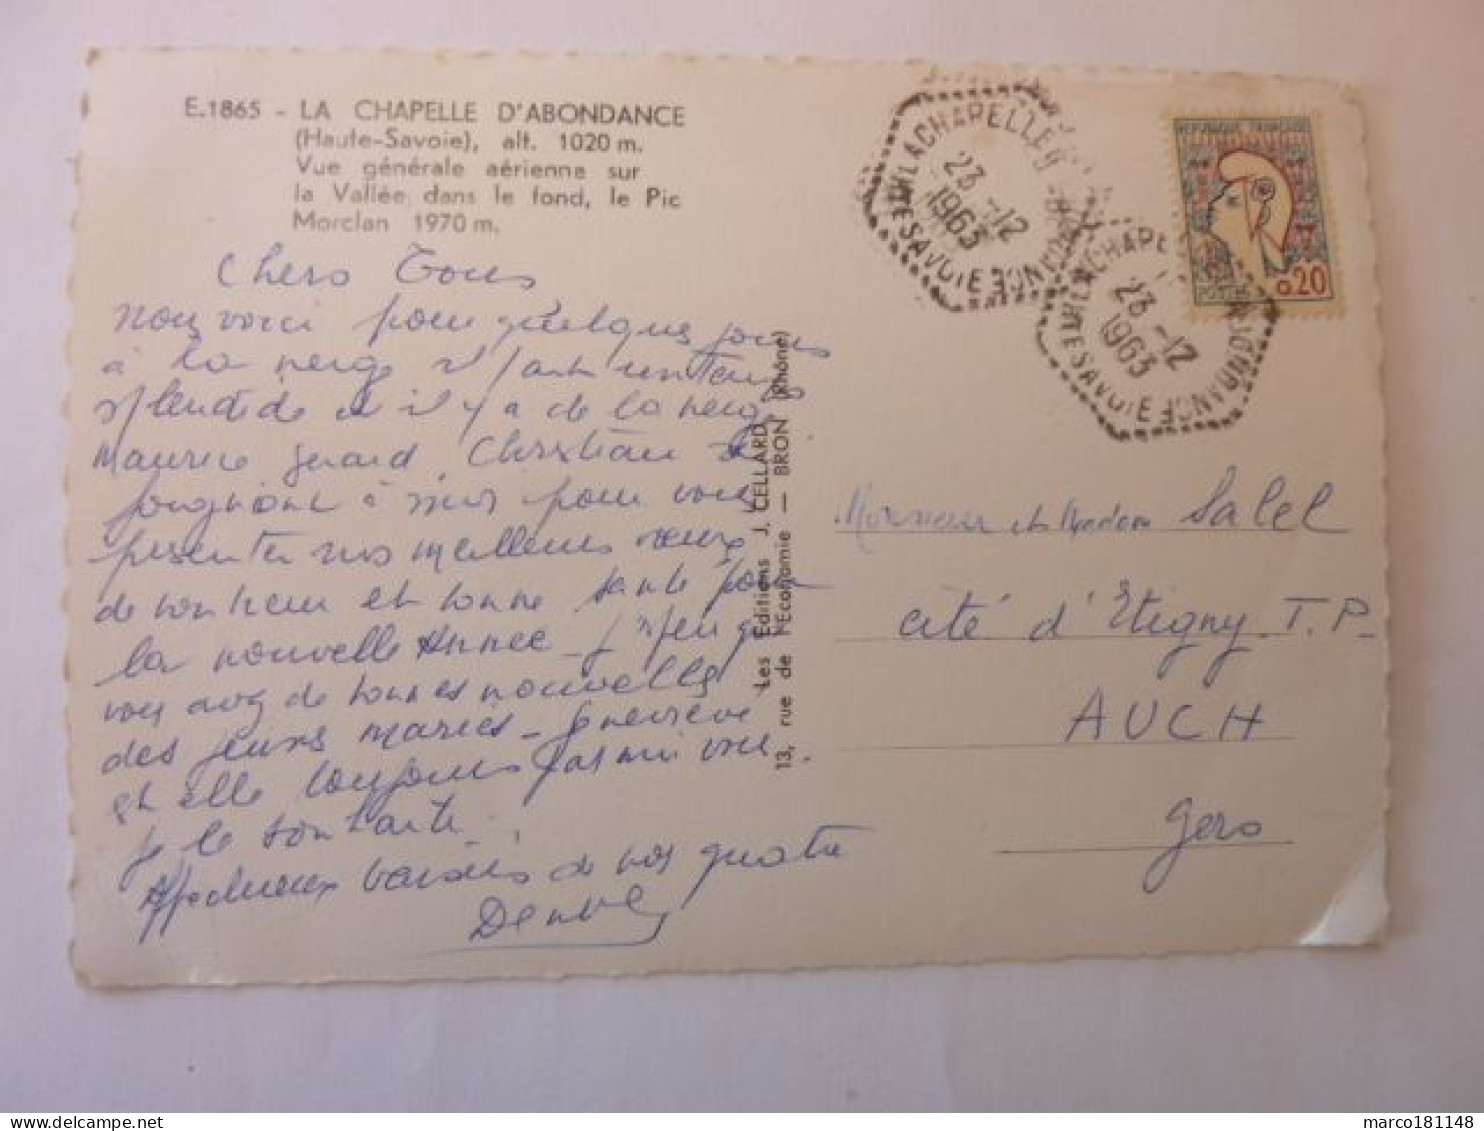 E.1865 - LA CHAPELLE D'ABONDANCE
(Haute-Savoie), alt. 1020 m.
Vue générale aérienne sur
la Vallée; dans le fond, le Pic
Morclan 1970 m.
Chers Tous
nous voici pour quelques jours
à la neige il fait un temps
splendide et il y a de la neige
Maurice Gerard, Christian se
joignent à moi pour vous
presenter nos meilleurs vœux
de bonheur et bonne santé pour
la nouvelle Année - j'espere que
vous avez de bonnes nouvelles
des jeunes mariés - Genevieve
est elle toujours parmi vous.
je le souhaite.
Affectueux baisers de nos quatre
Les Editions J. CELLARD
13, rue de l'Economie — BRON (Rhône)
LA CHAPELLE
HTE SAVOIE
23 -12
1963
LA CHAPE
HTE SAVOIE
23 -12
1963
REPUBLIQUE FRANÇAISE
POSTES
0.20
Monsieur et Madame Salel
cité d'Etigny - T. P.
AUCH
Gers
delcampe.net
marco181148